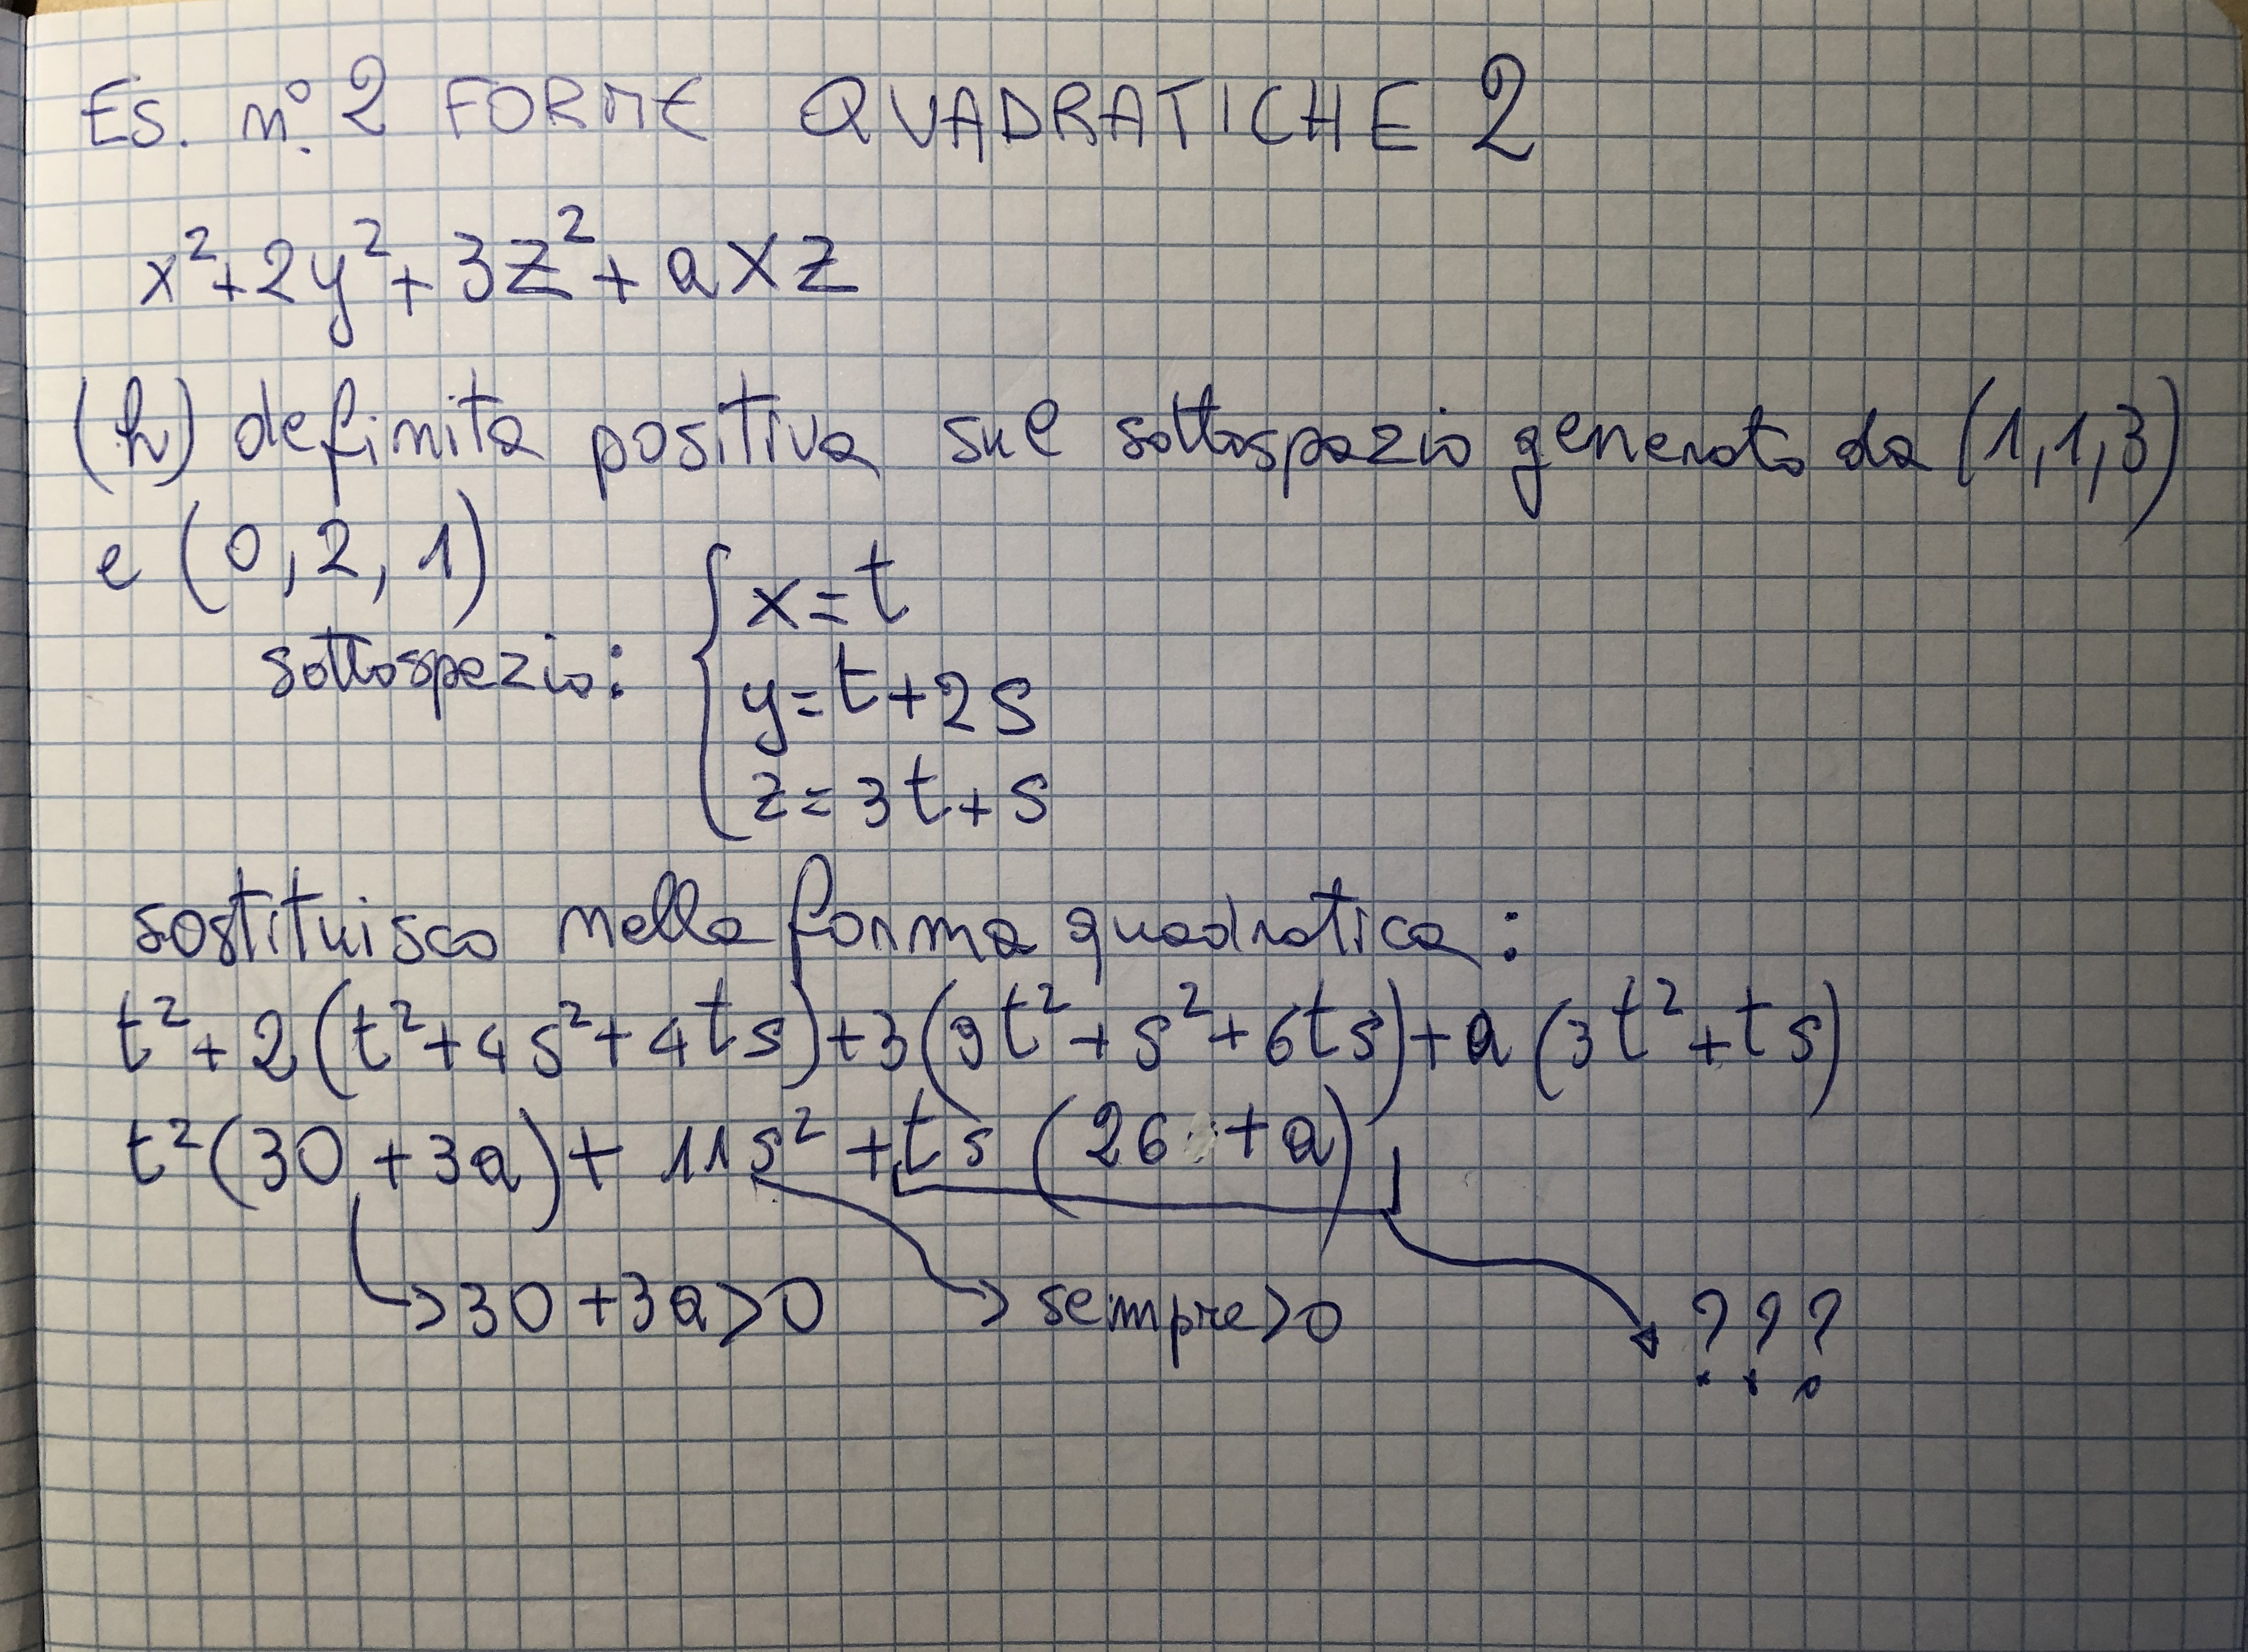 Es. n.° 2 FORME QUADRATICHE 2
x²+2y²+3z²+axz
(h) definita positiva sul sottospazio generato da (1,1,3)
e (0,2,1)
sottospazio: { x=t
y=t+2s
z=3t+s
sostituisco nella forma quadratica:
t²+2(t²+4s²+4ts)+3(9t²+s²+6ts)+a(3t²+ts)
t²(30+3a)+11s²+ts(26+a)
→30+3a>0 → sempre>0 → ???